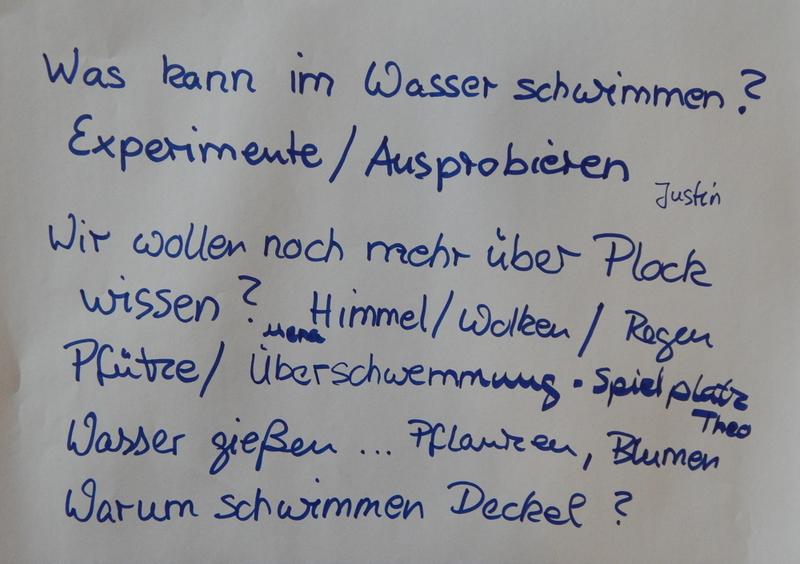 Was kann im Wasser schwimmen?
Experimente / Ausprobieren
Justin
Wir wollen noch mehr über Plock
wissen? Himmel / Wolken / Regen
Pfütze / Überschwemmung • Spielplatz
Theo
Wasser gießen ... Pflanzen, Blumen
Warum schwimmen Deckel?